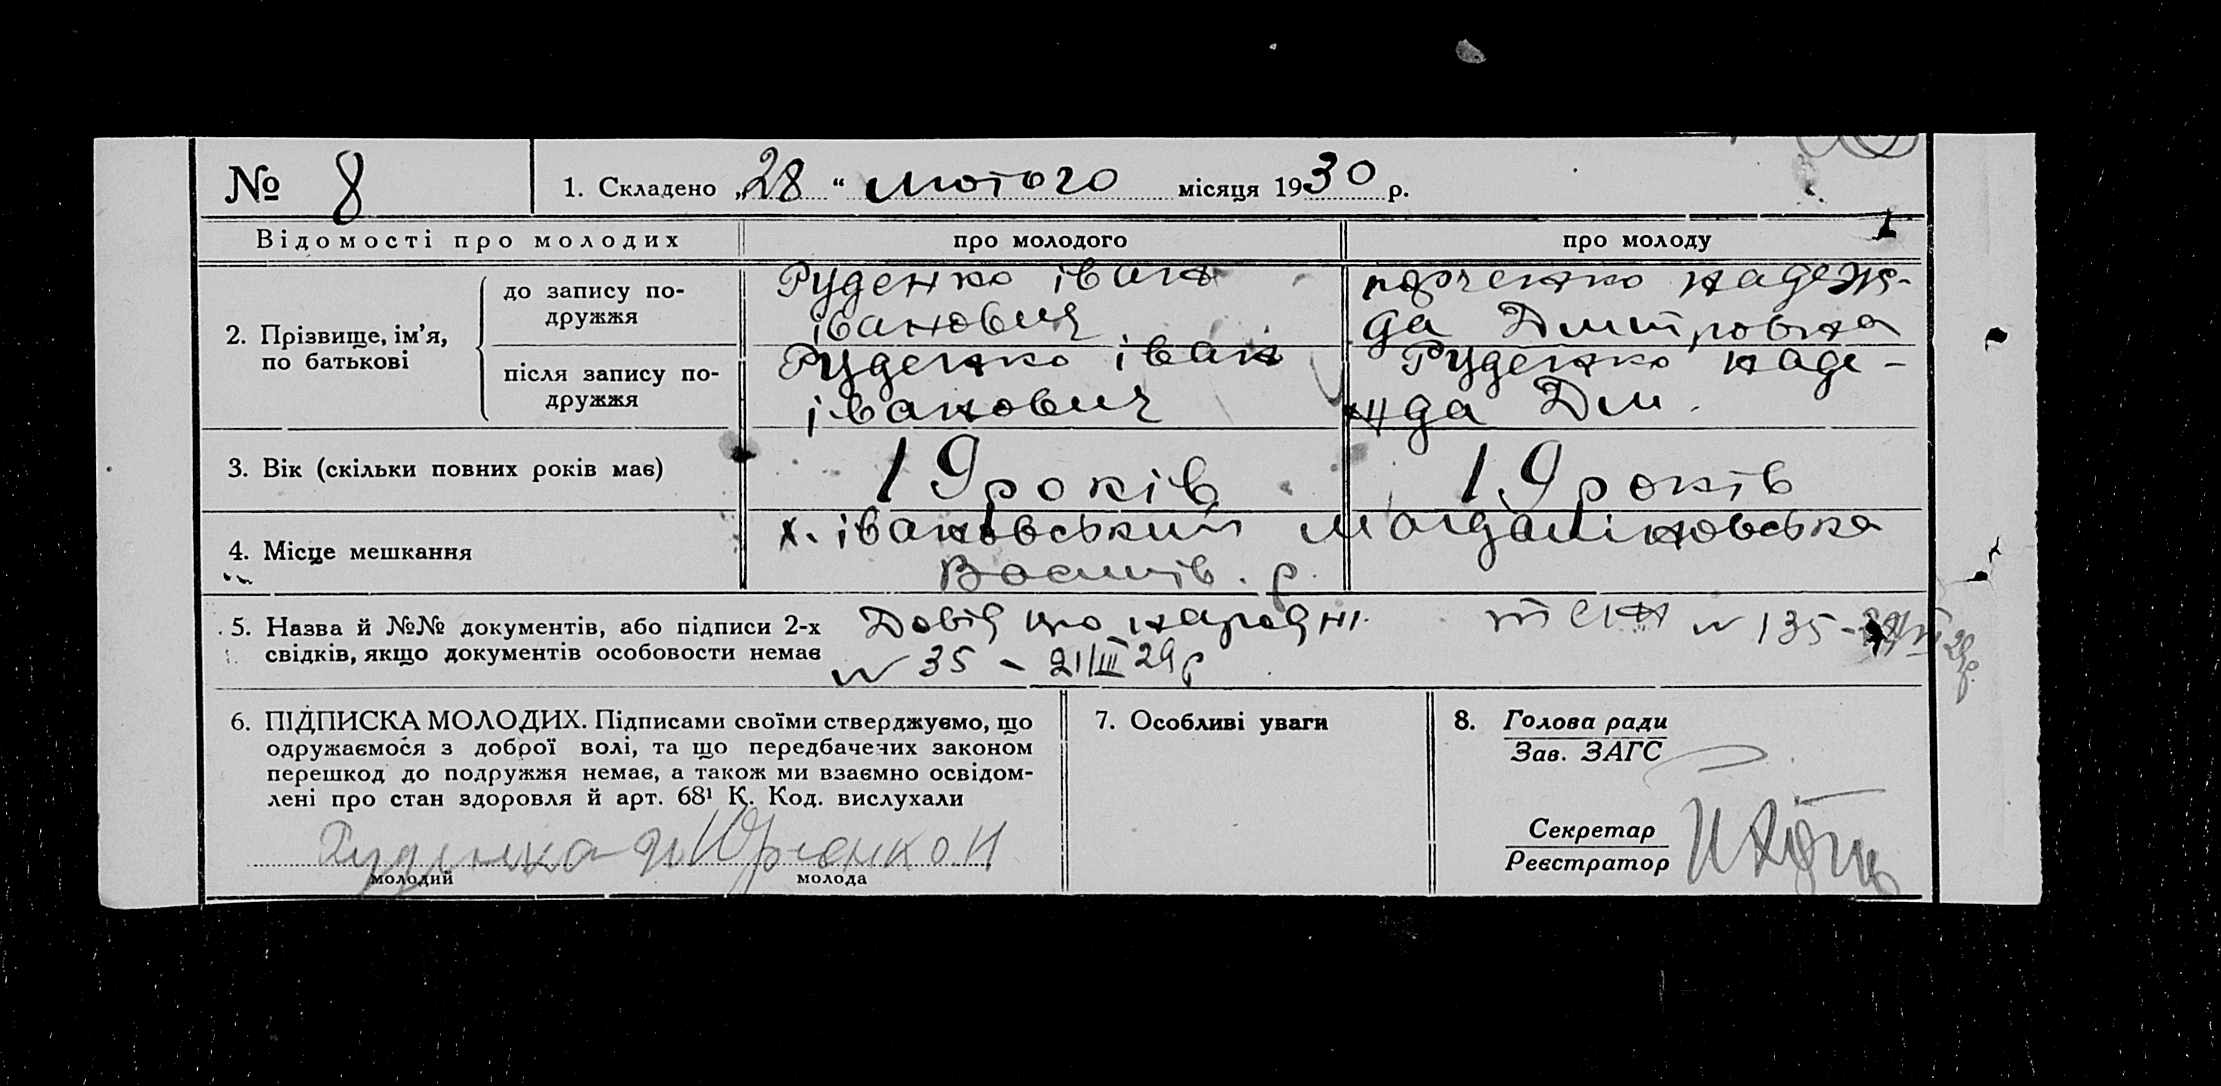 № 8
1. Складено „28“ лютого місяця 1930 р.
Відомості про молодих
про молодого
про молоду
2. Прізвище, ім’я, по батькові
до запису по-
дружжя
Руденко іван
іванович
надеж-
да Дмитровна
після запису по-
дружжя
Руденко іван
іванович
Руденко наде-
жда Дм.
3. Вік (скільки повних років має)
19 років
19 років
4. Місце мешкання
х. івановський
р.
5. Назва й №№ документів, або підписи 2-х
свідків, якщо документів особовости немає
Довід про народжі.
№ 35 – 21/III 29 р
№ 135 -
6. ПІДПИСКА МОЛОДИХ. Підписами своїми стверджуємо, що
одружаємося з доброї волі, та що передбачених законом
перешкод до подружжя немає, а також ми взаємно освідом-
лені про стан здоровля й арт. 68¹ К. Код. вислухали
молодий
молода
7. Особливі уваги
8. Голова ради
Зав. ЗАГС
Секретар
Реєстратор